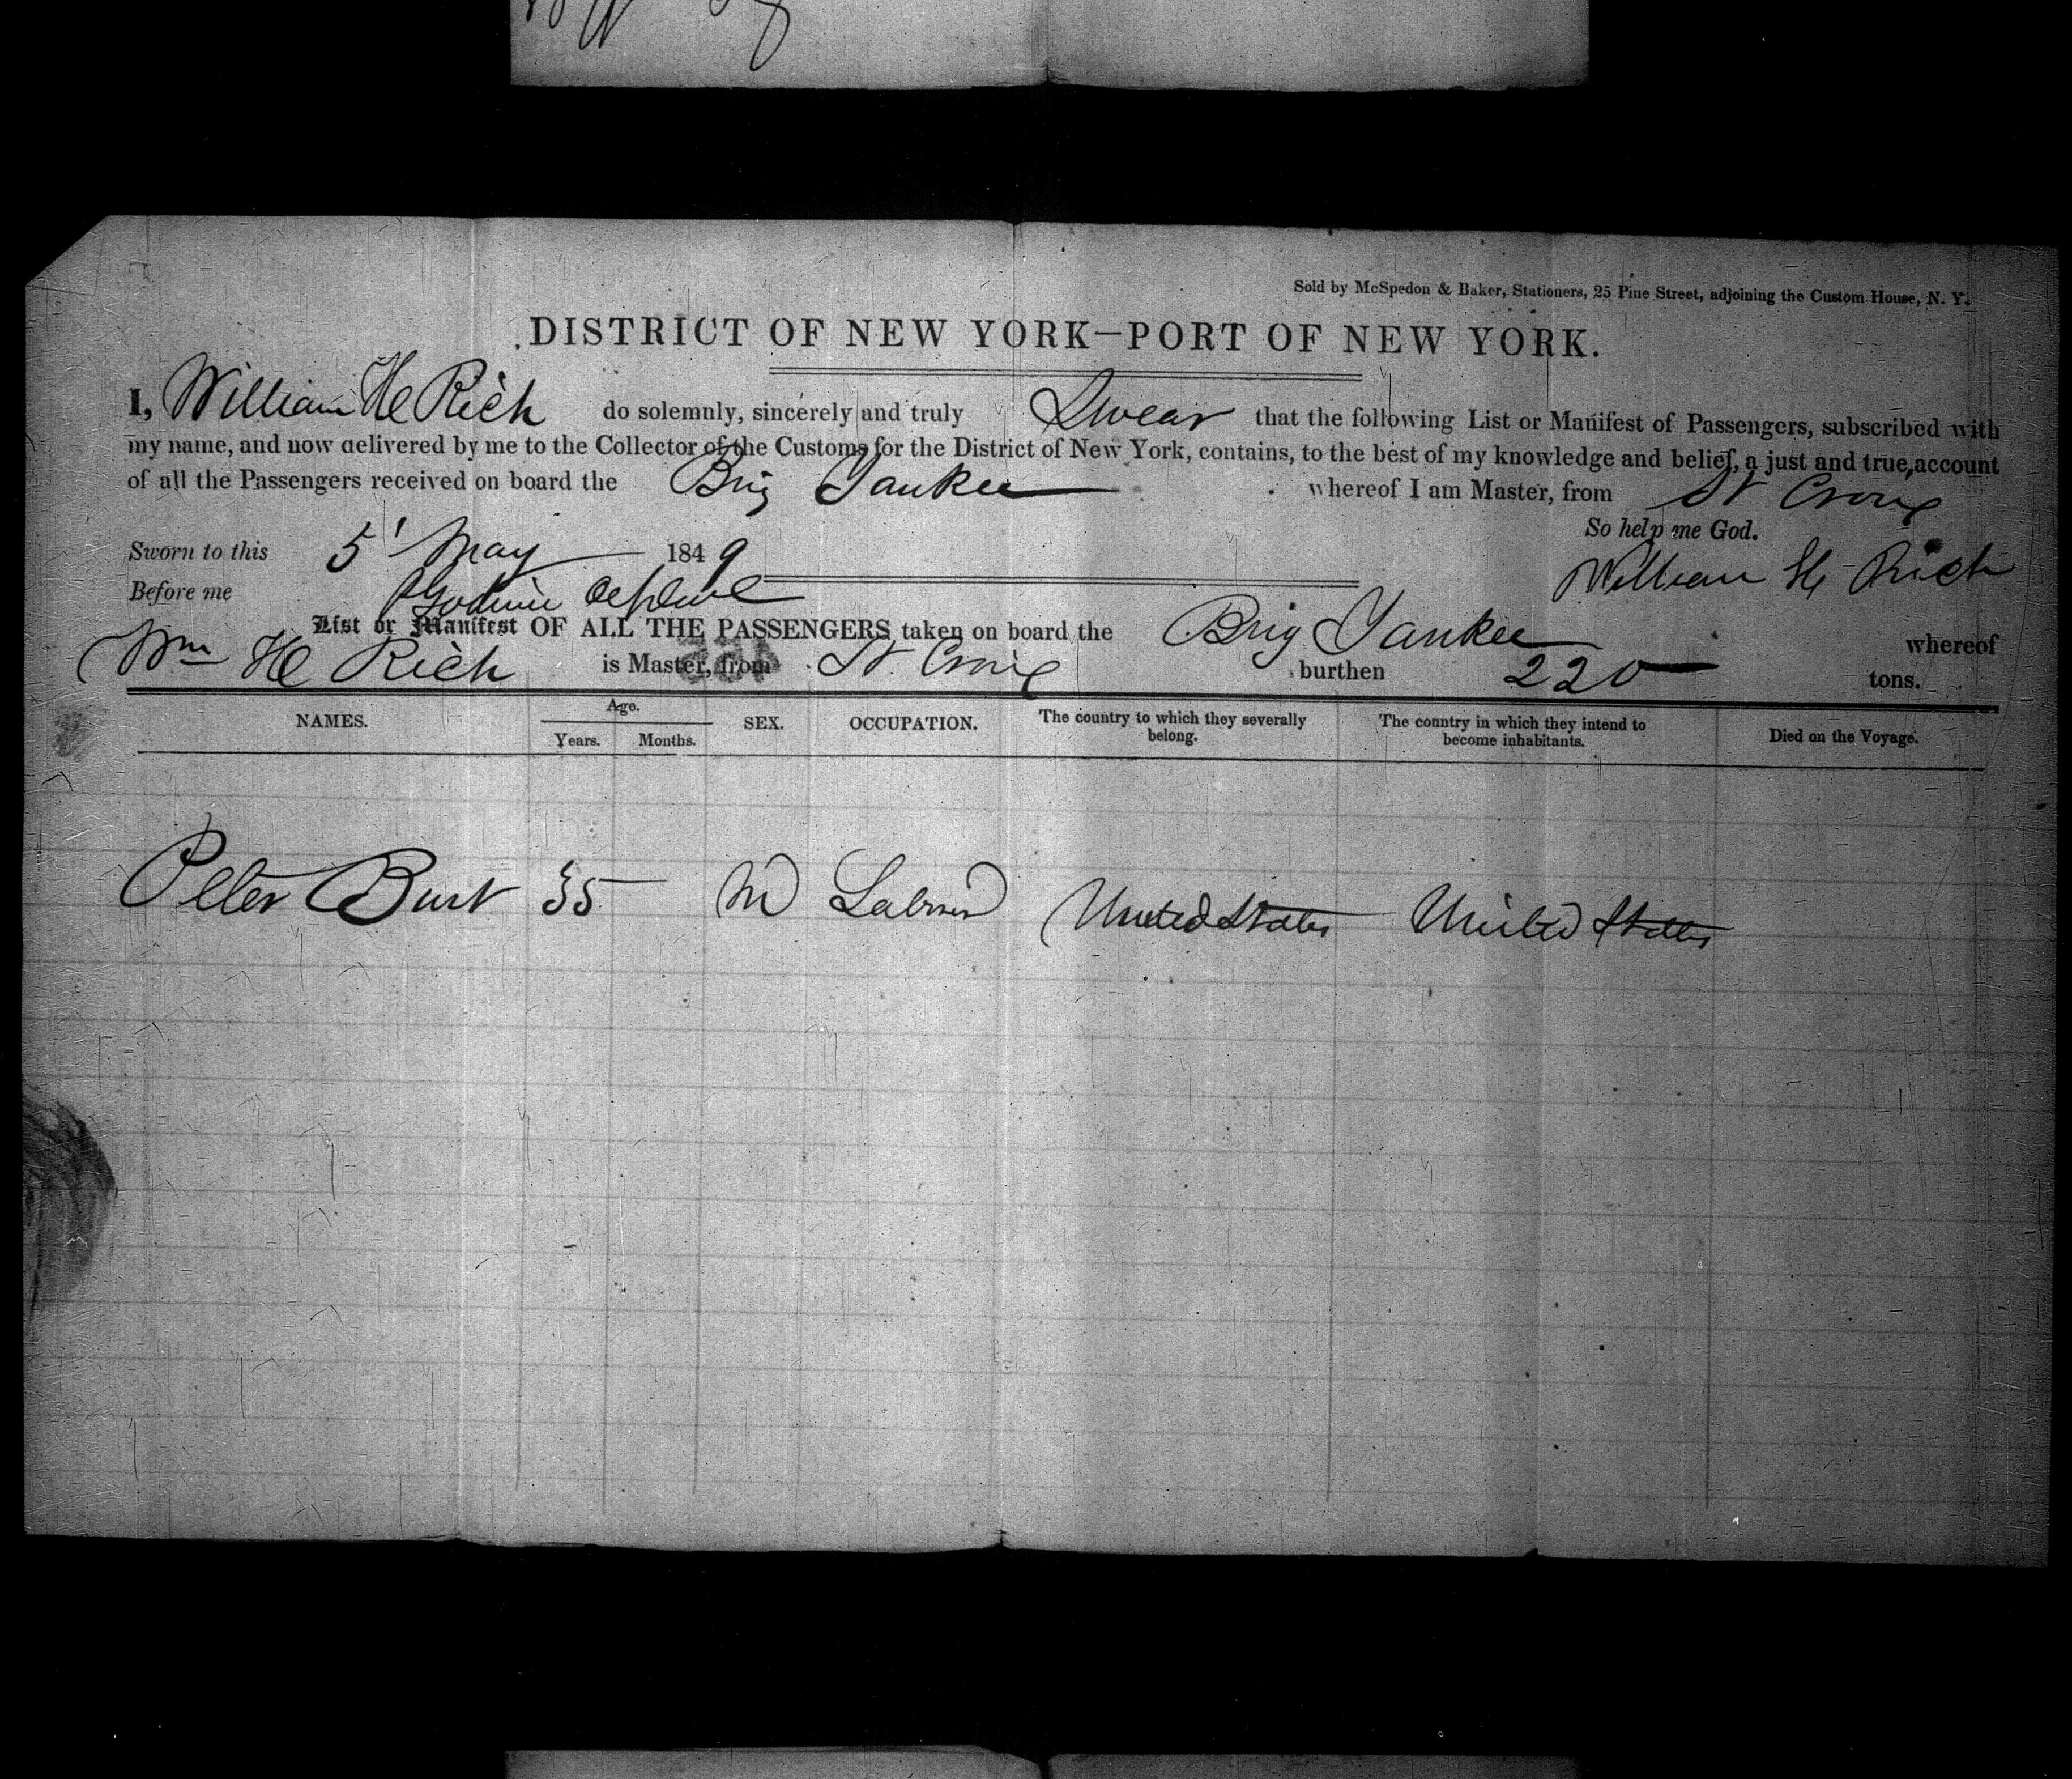 Sold by McSpedon & Baker, Stationers, 25 Pine Street, adjoining the Custom House, N. Y.
DISTRICT OF NEW YORK—PORT OF NEW YORK.
I, William H Rich do solemnly, sincerely and truly Swear that the following List or Manifest of Passengers, subscribed with
my name, and now delivered by me to the Collector of the Customs for the District of New York, contains, to the best of my knowledge and belief, a just and true account
of all the Passengers received on board the Brig Yankee whereof I am Master, from St Croix
So help me God.
Sworn to this 5' May 1849
William H Rich
Before me
List or Manifest OF ALL THE PASSENGERS taken on board the Brig Yankee whereof
Wm H Rich is Master, from St. Croix burthen 220 tons.
NAMES. Age. Years. Months. SEX. OCCUPATION. The country to which they severally belong. The country in which they intend to become inhabitants. Died on the Voyage.
Peter Burt 35 M United States United States